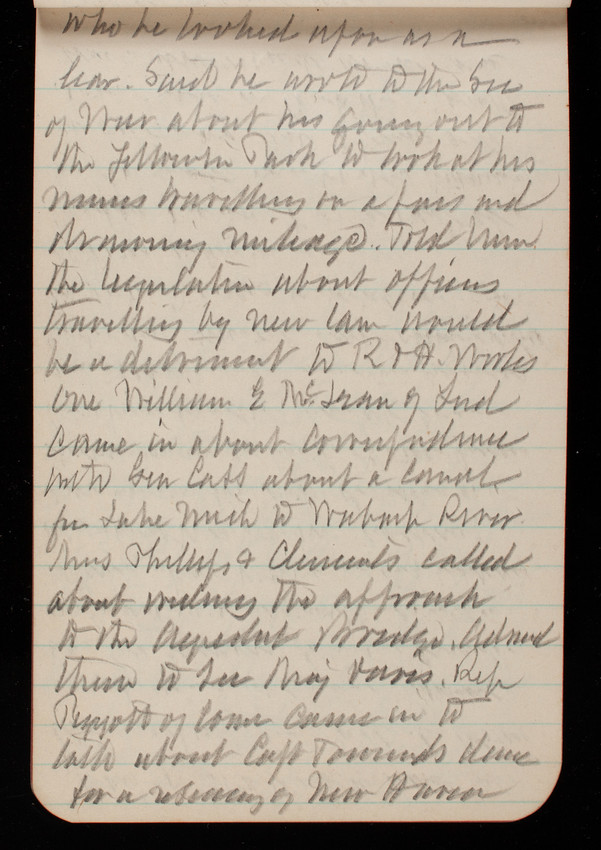 who he looked upon as a
liar. Said he wrote to the Sec
of War about his going out to
the Yellowstone Park to look at his
mines travelling on a pass and
drawing mileage. Told him
the legislation about officers
travelling by new law would
be a detriment to R & H. Works
One William E McLean of Ind
came in about correspondence
with Gen Cass about a canal
from Lake Mich to Wabash River.
Phillips & Clements called
about widening the approach
to the Aqueduct Bridge. Advised
them to see Maj Davis. Rep
of came in to
talk about Capt Townsends
for a of New